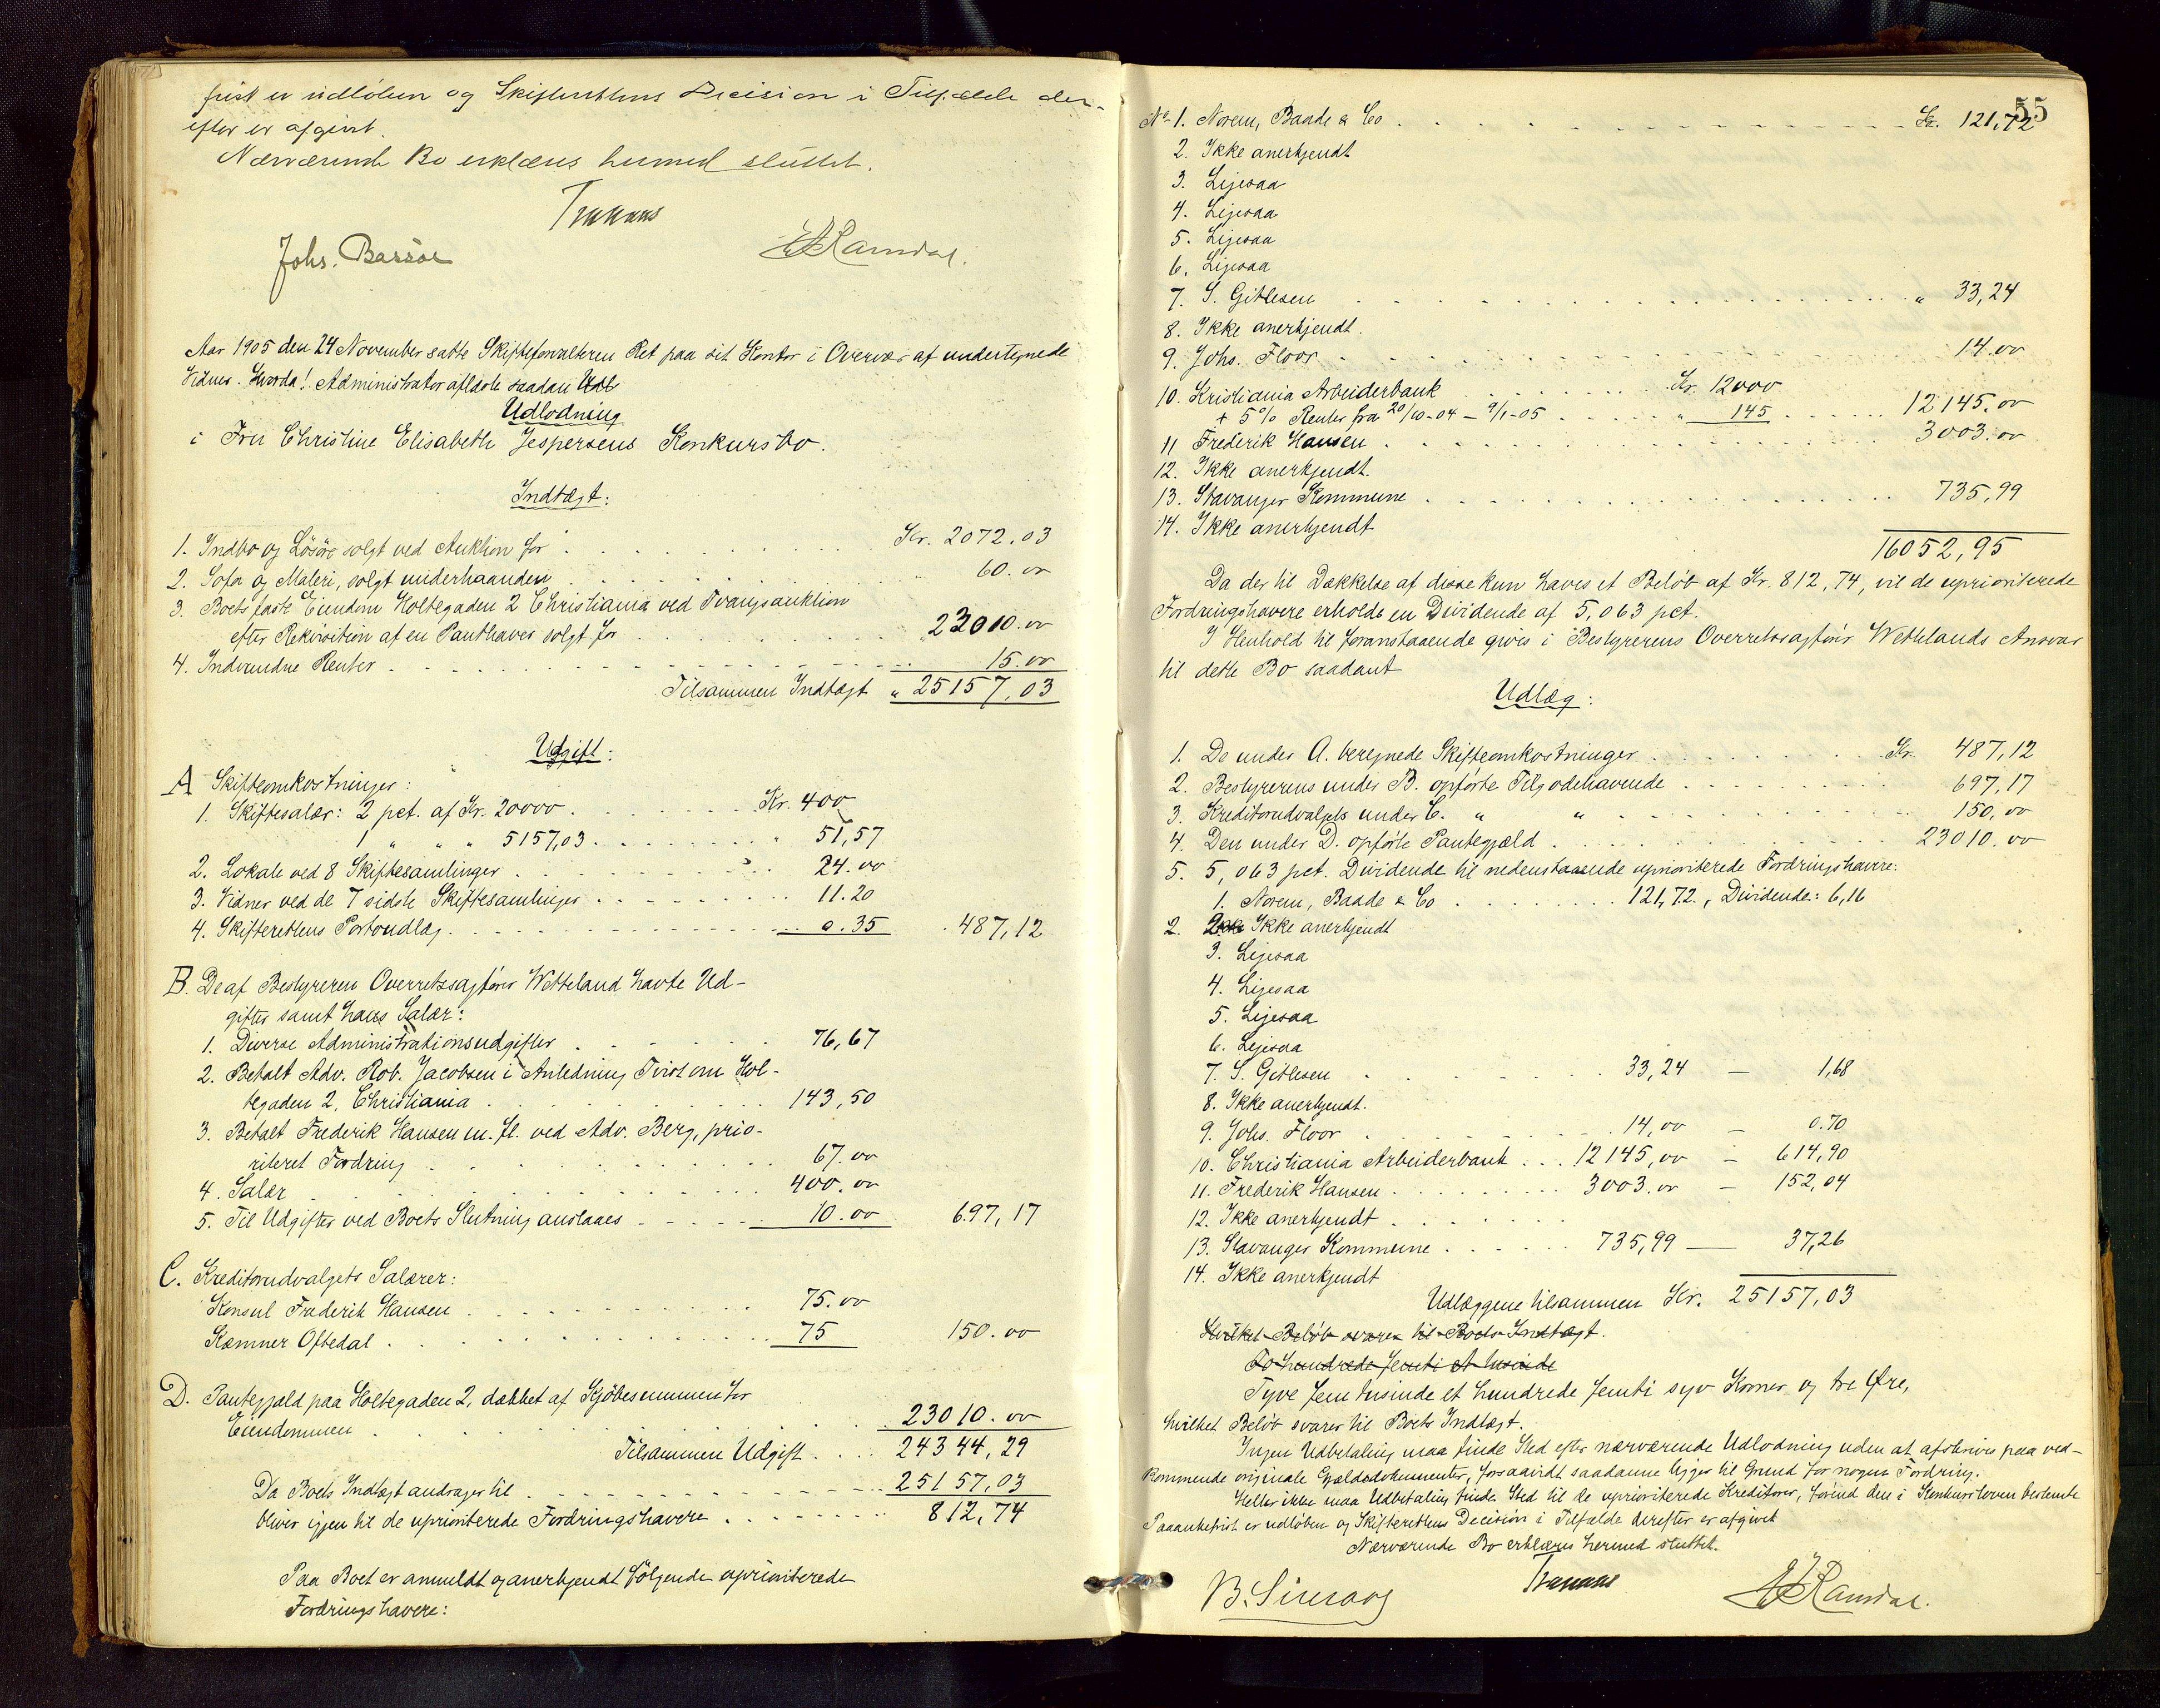 frist er udløben og Skifterettens Decision i Tilfælde der-
efter er afgivet.
Nærværende Bo erklæres hermed sluttet.
Johs. Barsøe
Ramdal.
Aar 1905 den 24 November satte Skifteforvalteren Ret paa sit Kontor i Overvær af undertegnede
Vidner. Hvorda! Administrator aflagde saadan Udl
Udlodning
i Fru Christine Elisabeth Jespersens Konkursbo.
Indtægt:
1. Indbo og Løsøre solgt ved Auktion for . . . Kr. 2072.03
2. Sofa og Maleri, solgt underhaanden . . . " 60.00
3. Boets faste Eiendom Holtegaden 2 Christiania ved Tvangsauktion
efter Rekvisition af en Panthaver solgt for . . . 23010.00
4. Indvundne Renter . . . 15.00
Tilsammen Indtægt " 25157,03
Udgift:
A Skifteomkostninger:
1. Skiftesalær: 2 pct. af Kr. 20000 . . . Kr. 400
1 " " " 5157,03 . . . " 51,57
2. Lokale ved 8 Skiftesamlinger . . . 24.00
3. Vidner ved de 7 sidste Skiftesamlinger . . . 11.20
4. Skifterettens Portoudlæg . . . 0.35 . 487,12
B. De af Bestyreren Overretssagfører Wetteland havte Ud-
gifter samt hans Salær:
1. Diverse Administrationsudgifter . . . 76,67
2. Betalt Adv. Rob. Jacobsen i Anledning Tvist om Hol-
tegaden 2, Christiania . . . 143,50
3. Betalt Frederik Hansen m. fl. ved Adv. Berg, prio-
riteret Fordring . . . 67.00
4. Salær . . . 400.00
5. Til Udgifter ved Boets Slutning anslaaes . . . 10.00 697,17
C. Kreditorudvalgets Salærer:
Konsul Frederik Hansen . . . 75.00
Kæmner Oftedal . . . 75 150.00
D. Pantegjæld paa Holtegaden 2, dækket af Kjøbesummen for
Eiendommen . . . 23010.00
Tilsammen Udgift . . . 24344,29
Da Boets Indtægt andrager til . . . 25157,03
bliver igjen til de uprioriterede Fordringshavere . . . 812,74
Paa Boet er anmeldt og anerkjendt følgende uprioriterede
Fordringshavere:
55
No 1. Norem, Baade & Co . . . Kr. 121,72
2. Ikke anerkjendt
3. Ligesaa
4. Ligesaa
5. Ligesaa
6. Ligesaa
7. S. Gitlesen . . . " 33,24
8. Ikke anerkjendt.
9. Johs. Floor . . . 14.00
10. Kristiania Arbeiderbank . . . Kr. 12000
+ 5% Renter fra 20/10-04 - 9/1-05 . . . " 145 . . . 12145.00
11 Frederik Hansen . . . 3003.00
12. Ikke anerkjendt.
13. Stavanger Kommune . . . 735,99
14. Ikke anerkjendt
16052,95
Da der til Dækkelse af disse kun haves et Beløb af Kr. 812,74, vil de uprioriterede
Fordringshavere erholde en Dividende af 5,063 pct.
I Henhold til foranstaaende gives i Bestyrerens Overretssagfører Wettelands Ansvar
til dette Bo saadant
Udlæg:
1. De under A. beregnede Skifteomkostninger . . . Kr. 487,12
2. Bestyrerens under B. opførte Tilgodehavende . . . 697,17
3. Kreditorudvalgets under C. " " . . . 150,00
4. Den under D. opførte Pantegjæld . . . 23010.00
5. 5,063 pct. Dividende til nedenstaaende uprioriterede Fordringshavere:
1. Norem, Baade & Co . . . 121,72., Dividende: 6,16
2. Ikke anerkjendt
3. Ligesaa
4. Ligesaa
5. Ligesaa
6. Ligesaa
7. S. Gitlesen . . . 33,24 — 1,68
8. Ikke anerkjendt.
9. Johs. Floor . . . 14,00 — 0.70
10. Christiania Arbeiderbank . . . 12145,00 — 614,90
11. Frederik Hansen . . . 3003.00 — 152,04
12. Ikke anerkjendt . . .
13. Stavanger Kommune . . . 735,99 — 37,26
14. Ikke anerkjendt
Udlæggene tilsammen Kr. 25157,03
Hvilket Beløb svarer til Boets Indtægt.
To hundrede femti et tusinde
Tyve fem tusinde et hundrede femti syv Kroner og tre Øre,
hvilket Beløb svarer til Boets Indtægt.
Ingen Udbetaling maa finde Sted efter nærværende Udlodning uden at afskrives paa ved-
kommende originale Gjældsdokumenter, forsaavidt saadanne ligger til Grund for nogen Fordring.
Heller ikke maa Udbetaling finde Sted til de uprioriterede Kreditorer, førend den i Konkursloven bestemte
Paaankefrist er udløben og Skifterettens Decision i Tilfælde derefter er afgivet
Nærværende Bo erklæres hermed sluttet.
Ramdal.